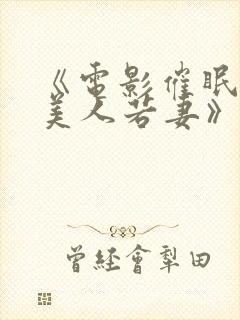 《電影催眠
美人若妻》
曾經會犁田